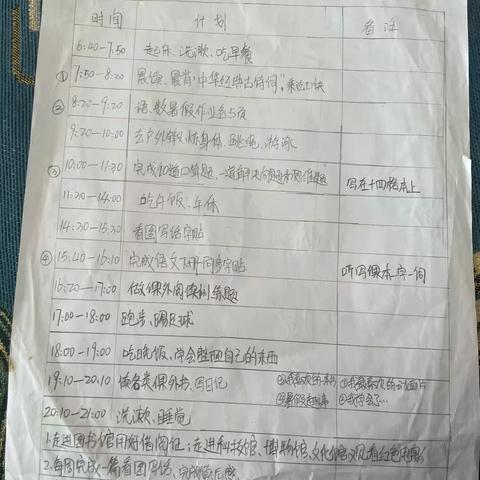 时间 计划 备注
6:40-7:50 起床、洗漱、吃早餐
① 7:50-8:20 晨读、晨背"中华经典古诗词"
② 8:20-9:20 语、数暑假作业各5页
9:20-10:00 去户外锻炼身体、跳绳、游泳
③ 10:00-11:30 完成 道口算题、一道 写在十四格本上
11:30-14:00 吃午饭、午休
14:30-15:30 看图写话字帖
④ 15:40-16:10 完成语文下册同步字帖 听写课本字词
16:20-17:00 做课外阅读训练题
17:00-18:00 跑步、踢足球
18:00-19:00 吃晚饭、学会整理自己的东西
19:10-20:10 读各类课外书、写日记 ①我喜欢的 ①我最喜欢的动画片
②暑假趣事 ②我学会了…
20:10-21:00 洗漱、睡觉
1.走进图书馆用好借阅证;走进科技馆、博物馆、文化馆观看红色电影
2.每周完成一篇看图写话、完成读后感